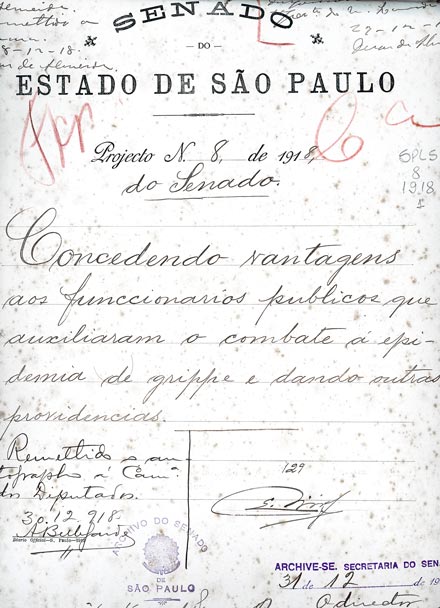 SENADO
— DO —
ESTADO DE SÃO PAULO
Projecto N. 8, de 1918,
do Senado.
Concedendo vantagens
aos funccionarios publicos que
auxiliaram o combate á epi-
demia de grippe e dando outras
providencias.
Remettido o au-
tographo á Cam.ª
dos Deputados.
30.12.918.
Diario Official—S. Paulo
129
SPLS
8
1918
ARCHIVO DO SENADO
DE
SÃO PAULO
ARCHIVE-SE. SECRETARIA DO SEN
31 de 12 de 19
O director